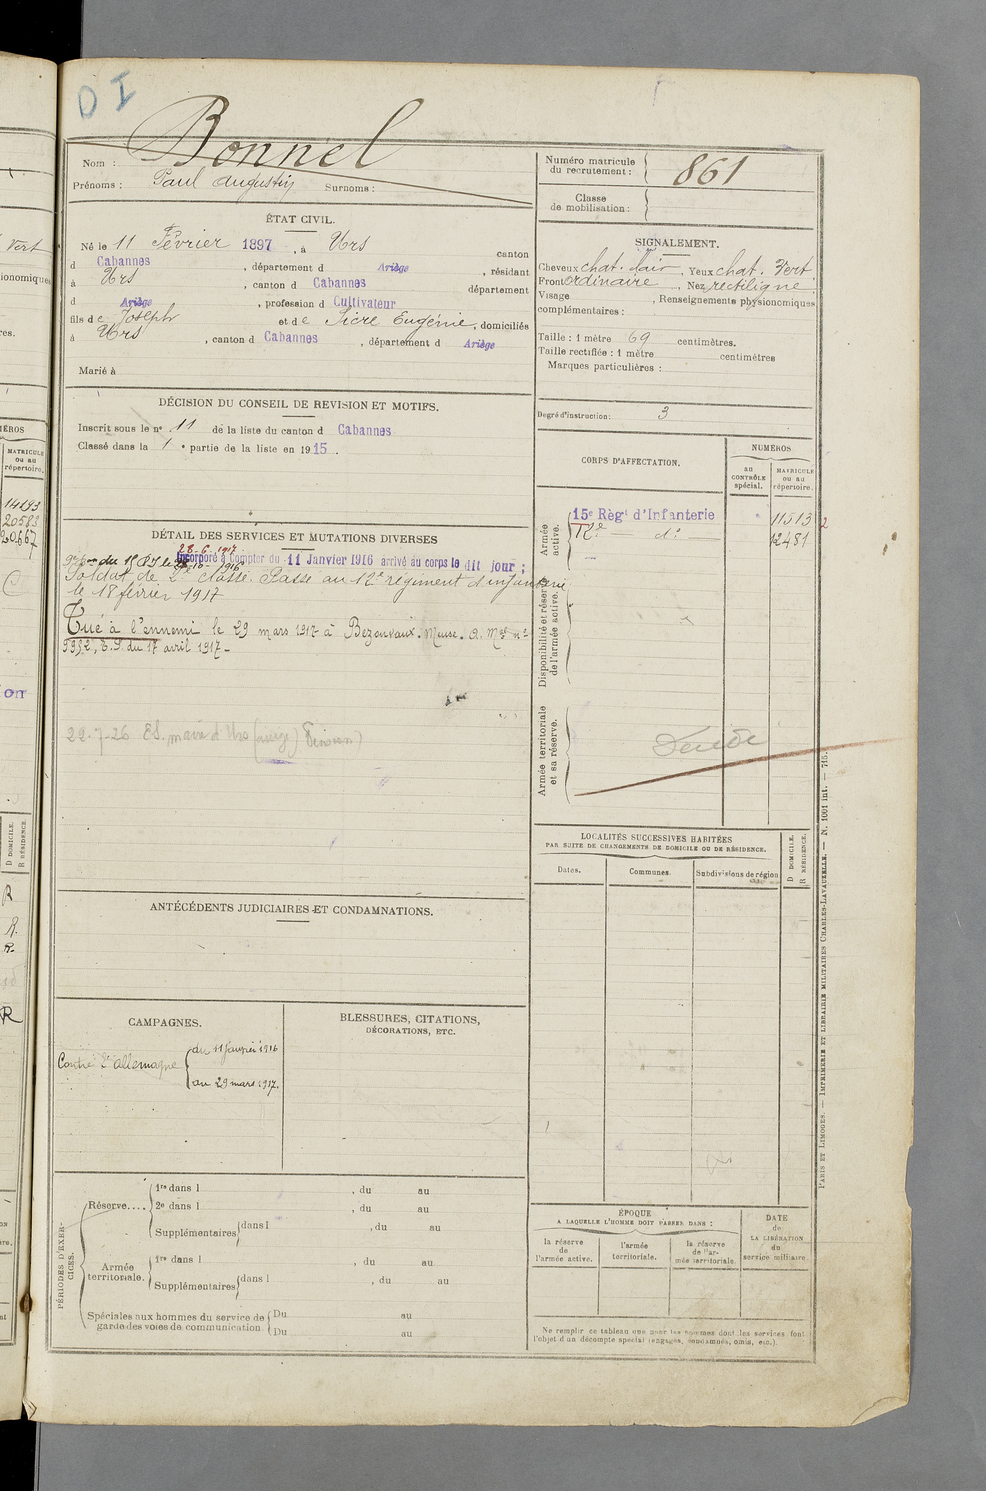 D I
Nom : Bonnel
Prénoms : Paul Augustin Surnoms :
Numéro matricule
du recrutement : 861
Classe
de mobilisation :
ÉTAT CIVIL.
Né le 11 Février 1897, à Urs canton
d Cabannes, département d Ariège, résidant
à Urs, canton d Cabannes département
d Ariège, profession d Cultivateur
fils de Joseph et de Sicre Eugénie, domiciliés
à Urs, canton d Cabannes, département d Ariège
Marié à
SIGNALEMENT.
Cheveux chat. clair, Yeux chat. Vert.
Front ordinaire, Nez rectiligne
Visage , Renseignements physionomiques
complémentaires :
Taille : 1 mètre 69 centimètres.
Taille rectifiée : 1 mètre centimètres
Marques particulières :
Degré d'instruction : 3
DÉCISION DU CONSEIL DE REVISION ET MOTIFS.
Inscrit sous le no 11 de la liste du canton d Cabannes
Classé dans la 1e partie de la liste en 1915.
DÉTAIL DES SERVICES ET MUTATIONS DIVERSES
28-6-1917
Incorporé à compter du 11 Janvier 1916 arrivé au corps le dit jour ;
Soldat de 2e classe. Passé au 12e régiment d'infanterie
le 18 février 1917
Tué à l'ennemi le 29 mars 1917 à Bezonvaux. Meuse. A. Mel no
5952, E.S. du 17 avril 1917-
22-7-26 E.S. maire d'Urs (ariège)
CORPS D'AFFECTATION.
NUMÉROS
au
CONTRÔLE
spécial.
MATRICULE
ou au
répertoire.
Armée
active.
15e Régt d'Infanterie 11513
12e - do - 12481
Disponibilité et réserve
de l'armée active.
Armée territoriale
et sa réserve.
Décédé
LOCALITÉS SUCCESSIVES HABITÉES
PAR SUITE DE CHANGEMENTS DE DOMICILE OU DE RÉSIDENCE.
Dates.
Communes.
Subdivisions de région
D DOMICILE.
R RÉSIDENCE.
ANTÉCÉDENTS JUDICIAIRES ET CONDAMNATIONS.
CAMPAGNES.
Contre l'allemagne
du 11 janvier 1916
au 29 mars 1917.
BLESSURES, CITATIONS,
DÉCORATIONS, ETC.
PÉRIODES D'EXER-
CICES.
Réserve....
1re dans l , du au
2e dans l , du au
Supplémentaires dans l , du au
Armée
territoriale.
1re dans l , du au
Supplémentaires dans l , du au
Spéciales aux hommes du service de
garde des voies de communication.
Du au
Du au
ÉPOQUE
A LAQUELLE L'HOMME DOIT PASSER DANS :
la réserve
de
l'armée active.
l'armée
territoriale.
la réserve
de l'ar-
mée territoriale.
DATE
de
LA LIBÉRATION
du
service militaire.
Ne remplir ce tableau que pour les hommes dont les services font
l'objet d'un décompte spécial (engagés, condamnés, omis, etc.).
PARIS ET LIMOGES. — IMPRIMERIE ET LIBRAIRIE MILITAIRES CHARLES-LAVAUZELLE. — N. 1001 int. — 715.
Vert
ionomiques
MATRICULE
ou au
répertoire.
14193
20583
20667
D DOMICILE.
R RÉSIDENCE.
R
R.
R.
R